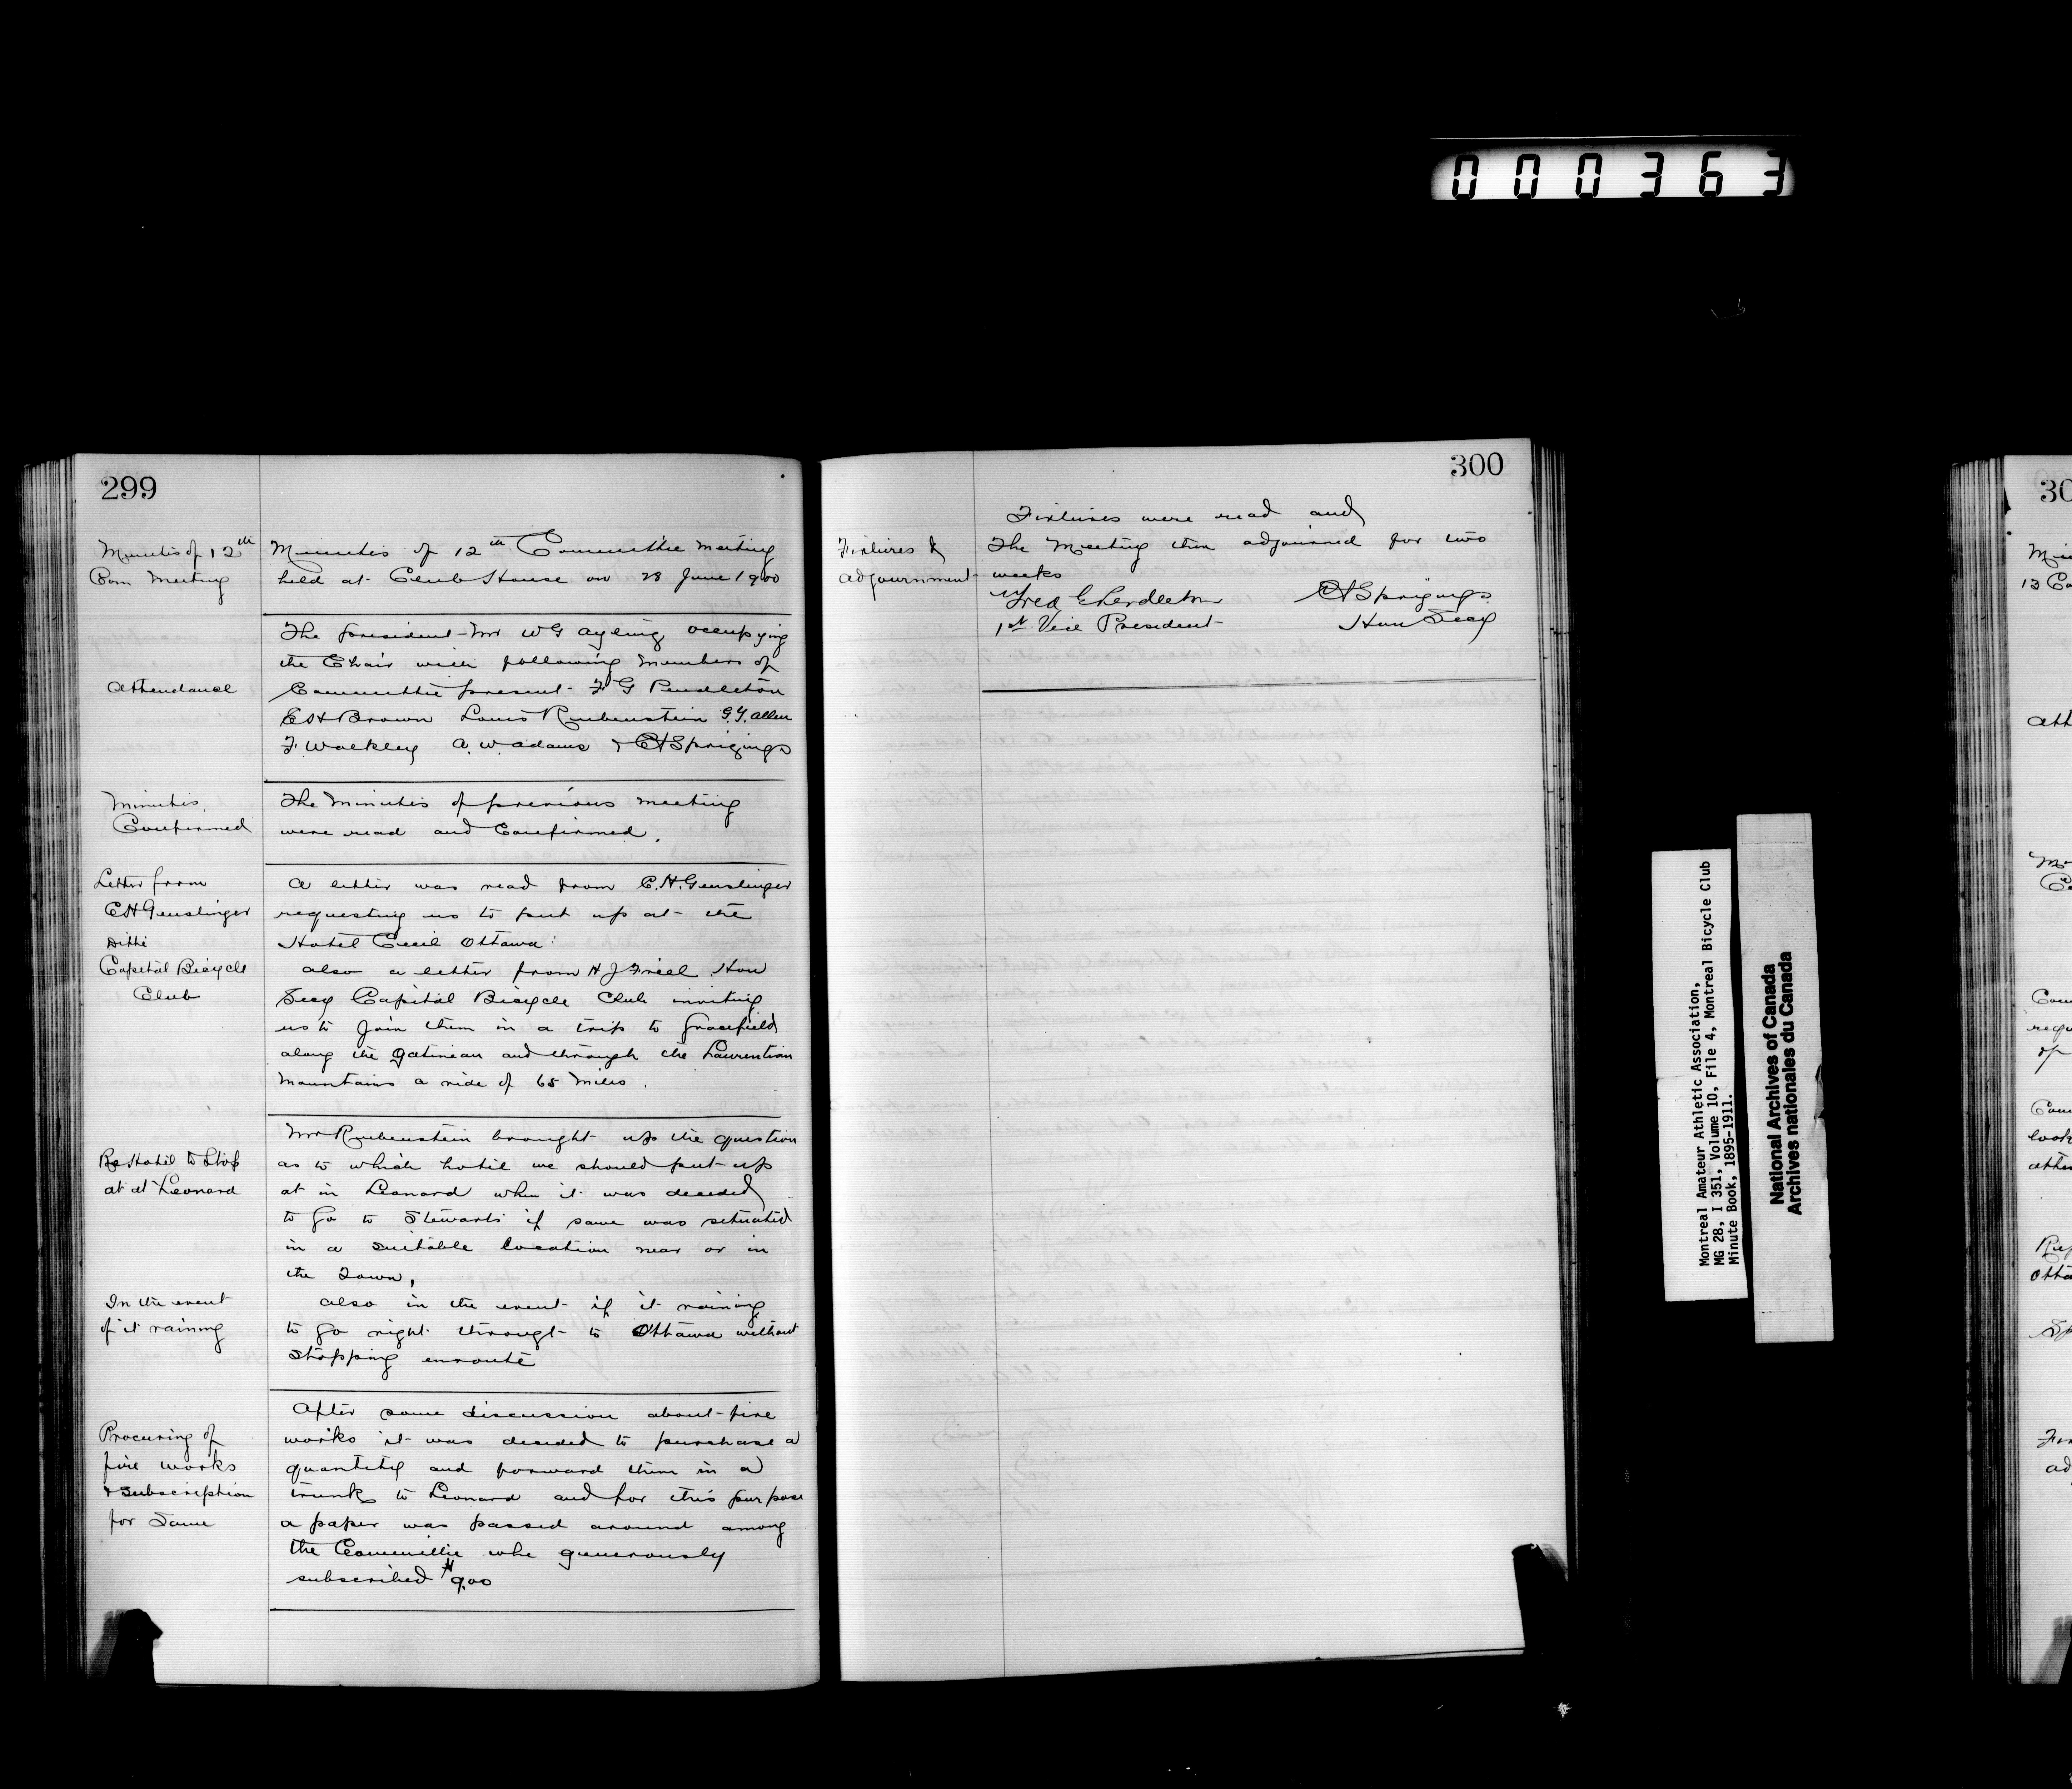 000363
299
Minutes of 12th
Com Meeting
Minutes of 12th Committee Meeting
held at Club House on 28 June 1900
Attendance
The President Mr W G Ayling occupying
the Chair with following Members of
Committee present F G Pendleton
E H Brown Louis Rubenstein G.Y. Allen
F. Walkley A. W. Adams & C H Sprigings
Minutes
Confirmed
The Minutes of previous meeting
were read and Confirmed.
Letter from
C H Genslinger
Ditto
Capital Bicycle
Club
A letter was read from C. H. Genslinger
requesting us to put up at the
Hotel Cecil Ottawa
also a letter from H J Friel Hon
Secy Capital Bicycle Club inviting
us to Join them in a trip to Gracefield
along the Gatineau and through the Laurentian
Mountains a ride of 65 Miles.
Re Hotel to Stop
at at Leonard
Mr Rubenstein brought up the question
as to which hotel we should put up
at in Leonard when it was decided
to go to Stewarts if same was situated
in a suitable location near or in
the Town,
In the event
of it raining
also in the event if it raining
to go right through to Ottawa without
Stopping enroute
Procuring of
fire works
& Subscription
for Same
After some discussion about fire
works it was decided to purchase a
quantity and forward them in a
trunk to Leonard and for this purpose
a paper was passed around among
the Committie who generously
subscribed $9.00
300
Fixtures &
adjournment
Fixtures were read and
The Meeting then adjourned for two
weeks
Fred G Pendleton
1st Vice President
C H Sprigings
Hon Secy
Montreal Amateur Athletic Association,
MG 28, I 351, Volume 10, File 4, Montreal Bicycle Club
Minute Book, 1895-1911.
National Archives of Canada
Archives nationales du Canada
30
13 Co